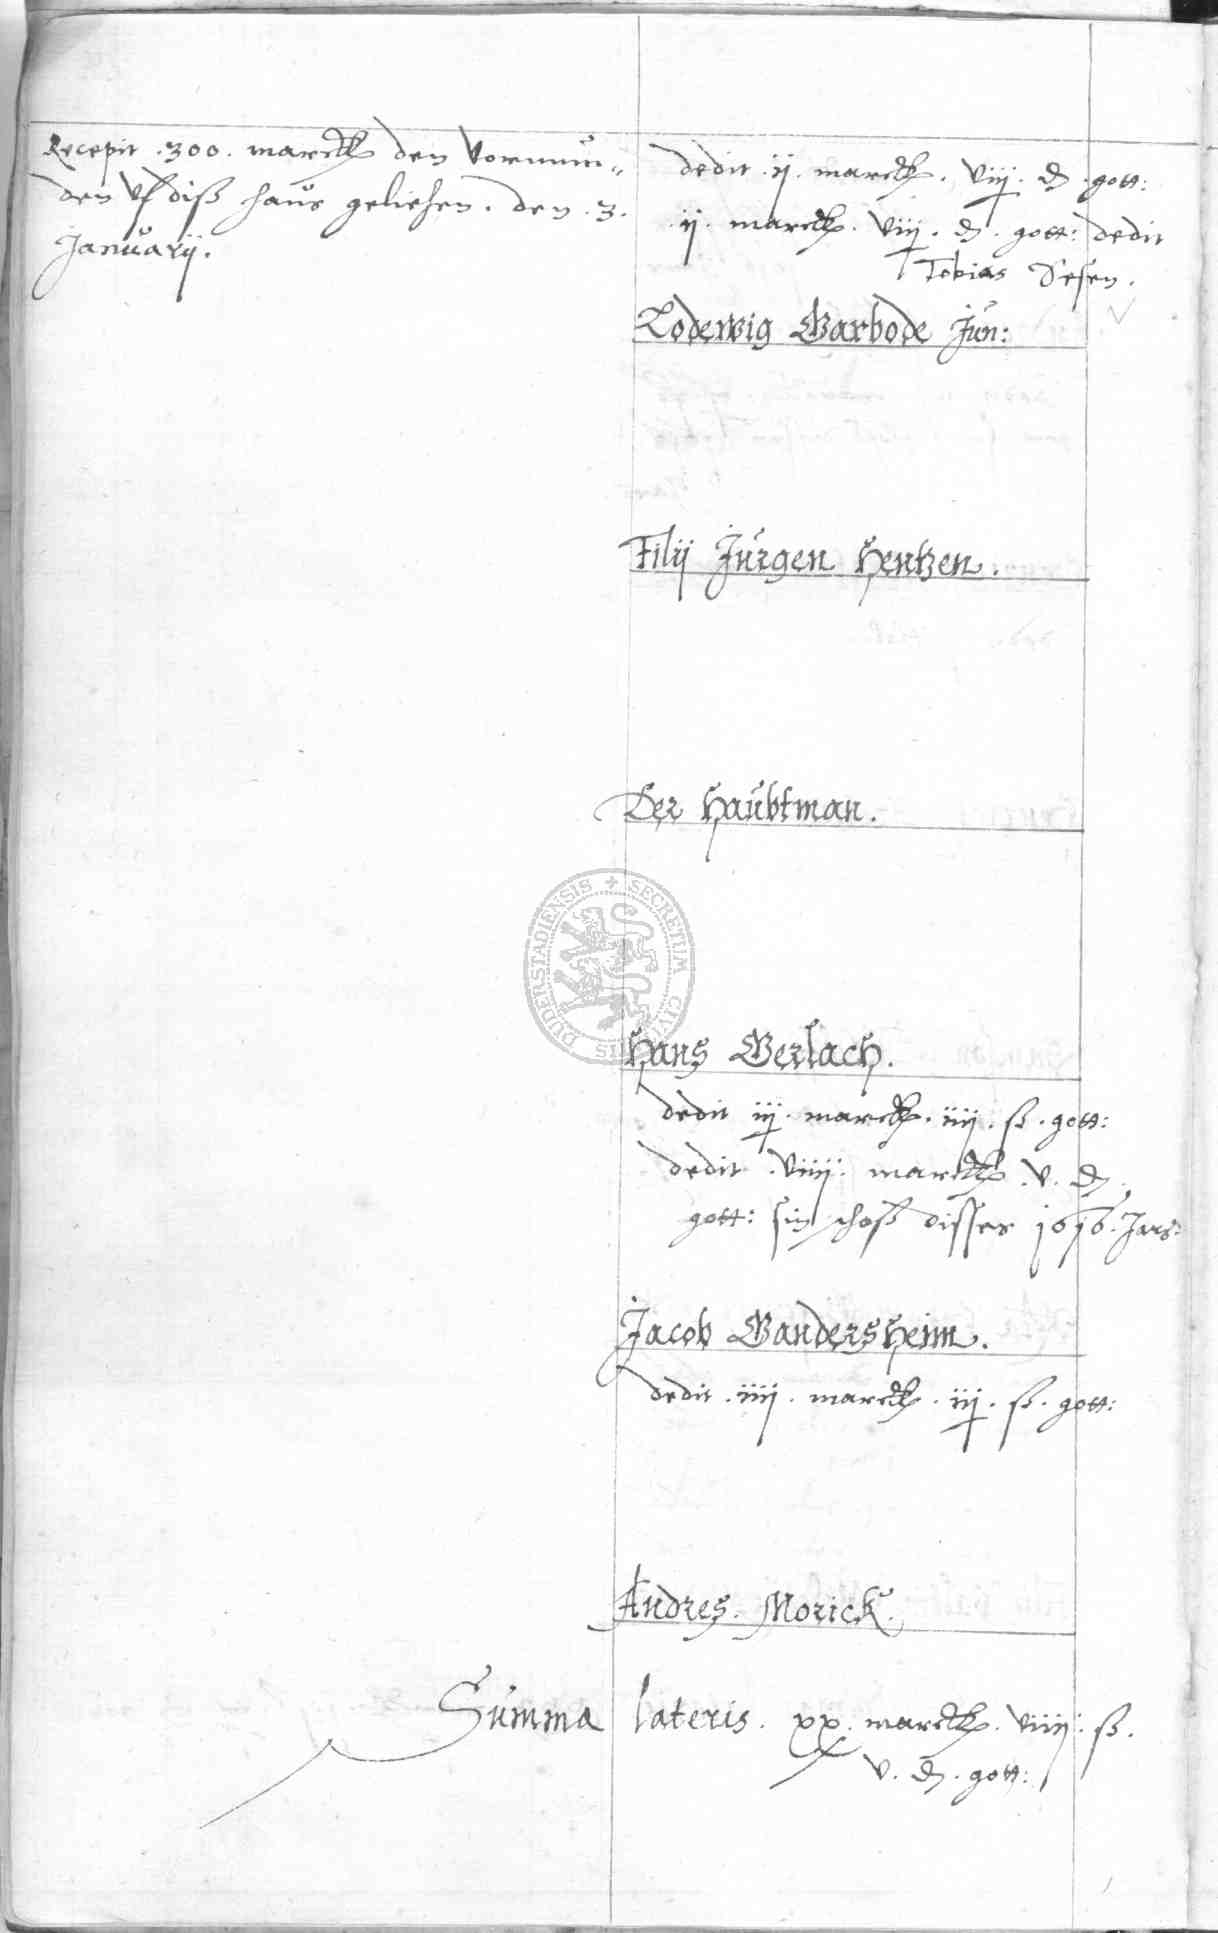 Recepit .300. marck den Vormün-
den vf diß haus geliehen. den .3.
Januarij.
dedit .ij. marck. viij. d. gott:
.ij. marck. viij. d. gott: dedit
Tobias Desen.
Lodewig Barbode Jün:
Filij Jürgen Hentzen.
Der Haubtman.
DUDERSTADIENSIS + SECRETUM CIVITATIS
Hans Gerlach.
dedit iij. marck. iiij. ß. gott:
dedit .viiij. marck. v. d.
gott: sin schoß disses 1616. Jars.
Jacob Gandersheim.
dedit .iiij. marck. iij. ß. gott:
Andres. Morick.
Summa lateris. xx. marck. viiij. ß.
v. d. gott: